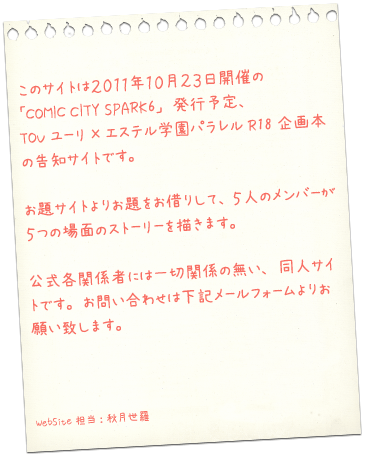 このサイトは2011年10月23日開催の
「COMIC CITY SPARK6」 発行予定、
TOV ユーリ×エステル学園パラレル R18 企画本
の告知サイトです。
お題サイトよりお題をお借りして、5人のメンバーが
5つの場面のストーリーを描きます。
公式各関係者には一切関係の無い、同人サイ
トです。お問い合わせは下記メールフォームよりお
願い致します。
WebSite 担当：秋月世羅